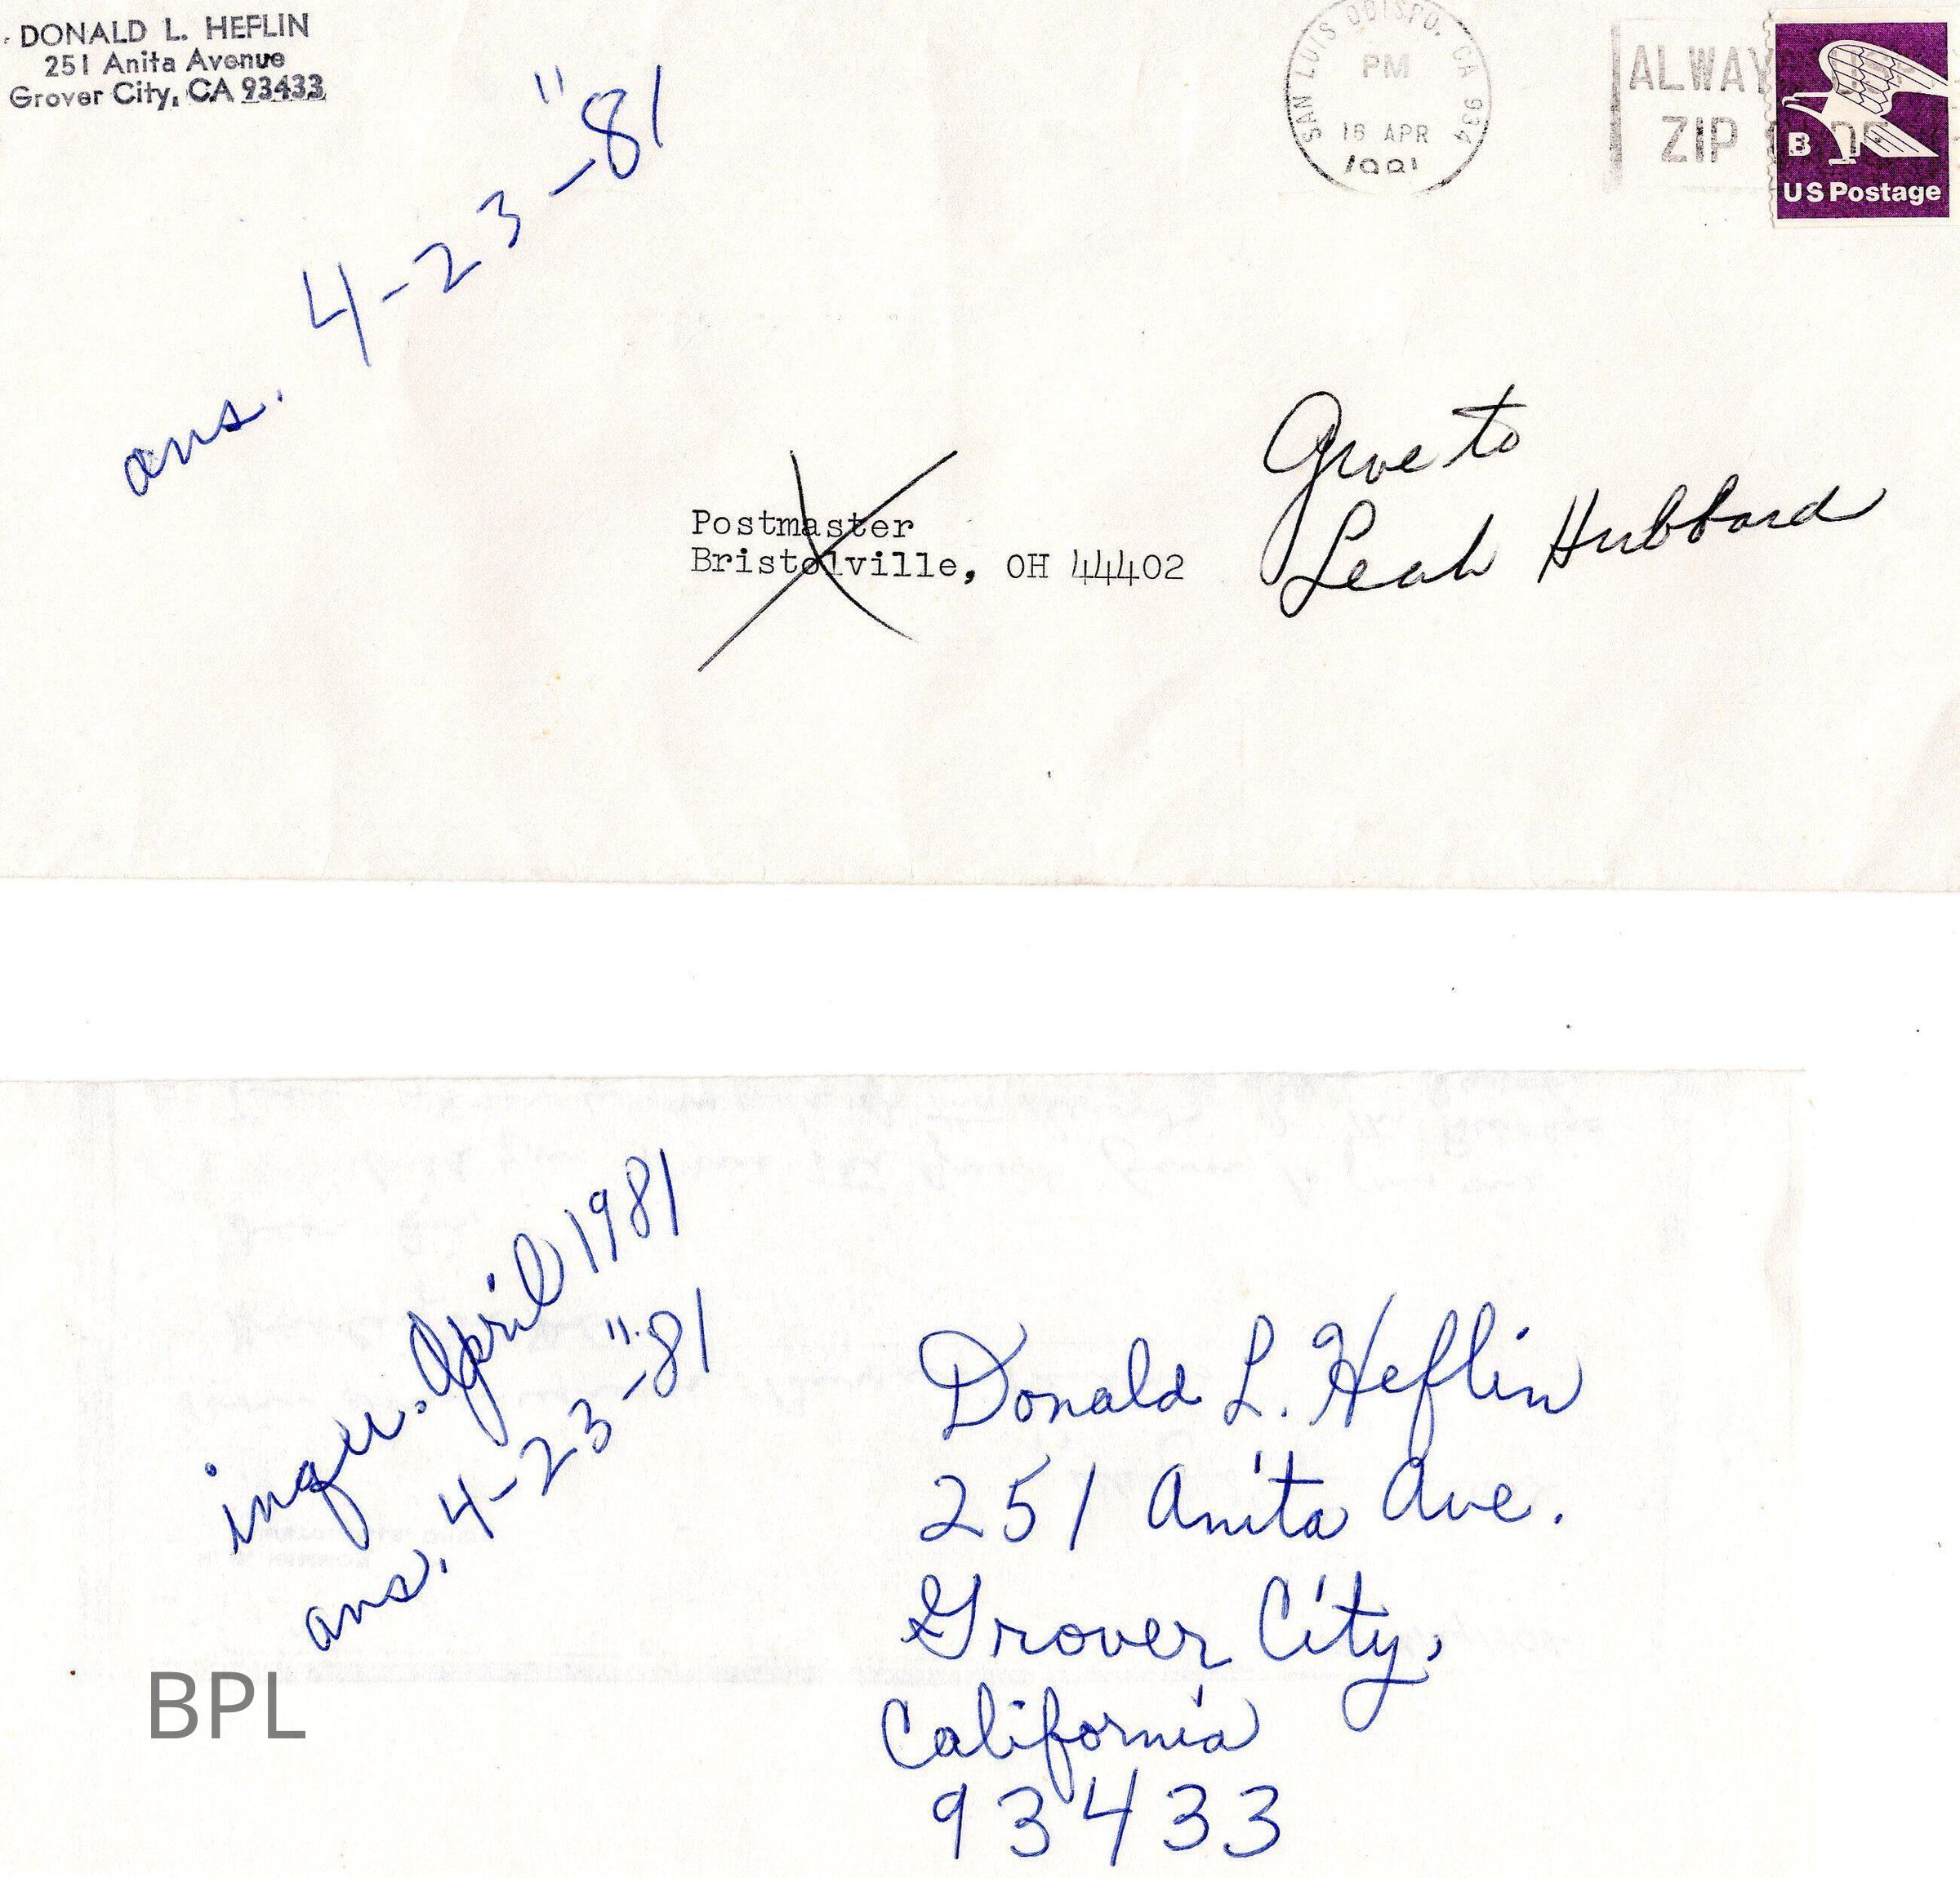 DONALD L. HEFLIN
251 Anita Avenue
Grover City, CA 93433
ans. 4-23-"81
SAN LUIS OBISPO, CA 934
PM
16 APR
1981
ALWAYS USE
ZIP CODE
B
US Postage
Postmaster
Bristolville, OH 44402
Give to
Leah Hubbard
inqu. April 1981
ans. 4-23-"81
Donald L. Heflin
251 Anita Ave.
Grover City,
California
93433
BPL